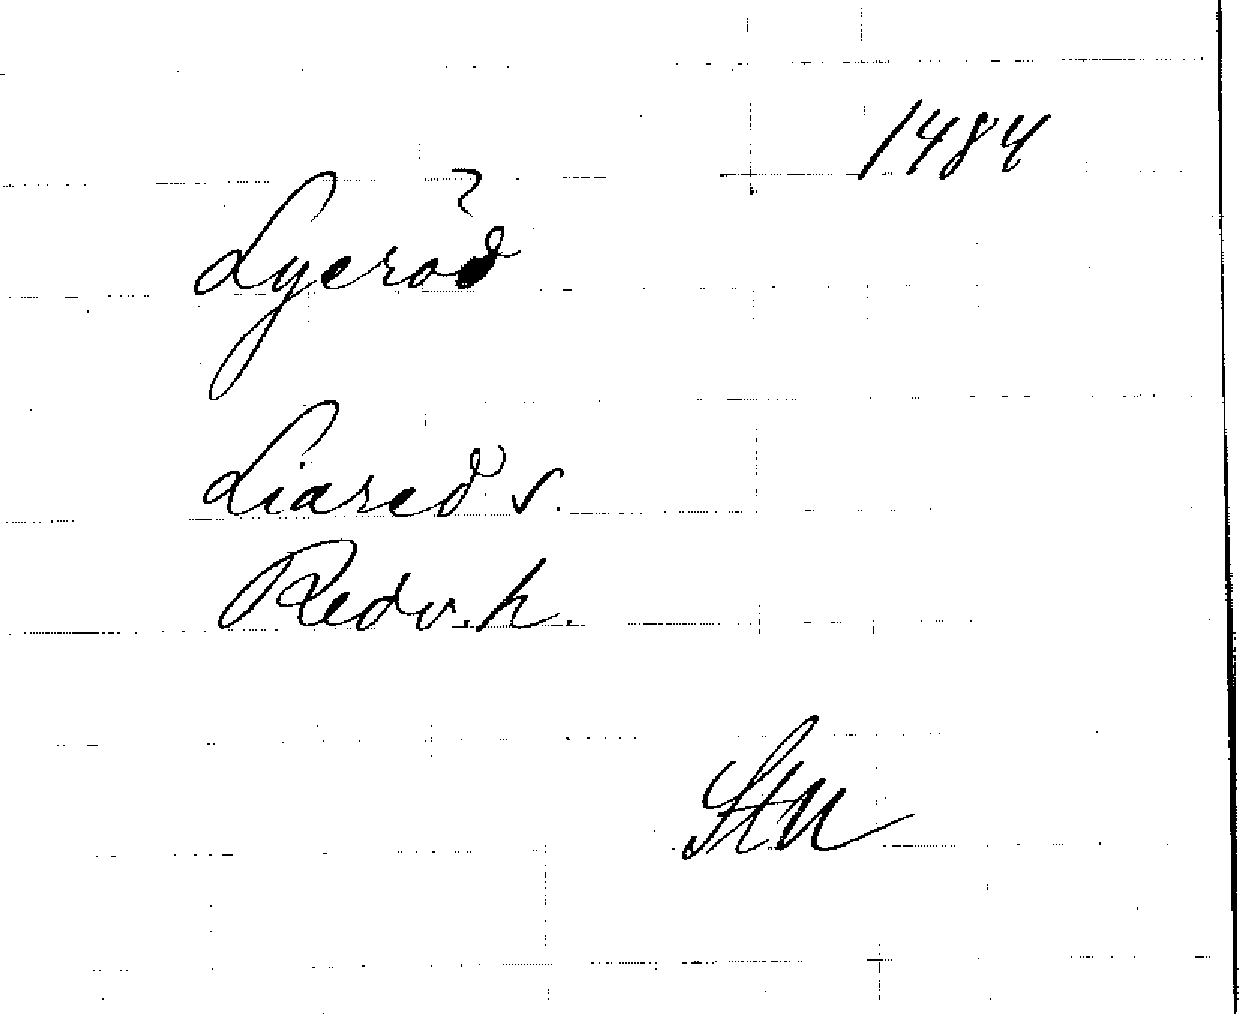 1484
Lyeröd
Liared s.
Redv. h.
StU